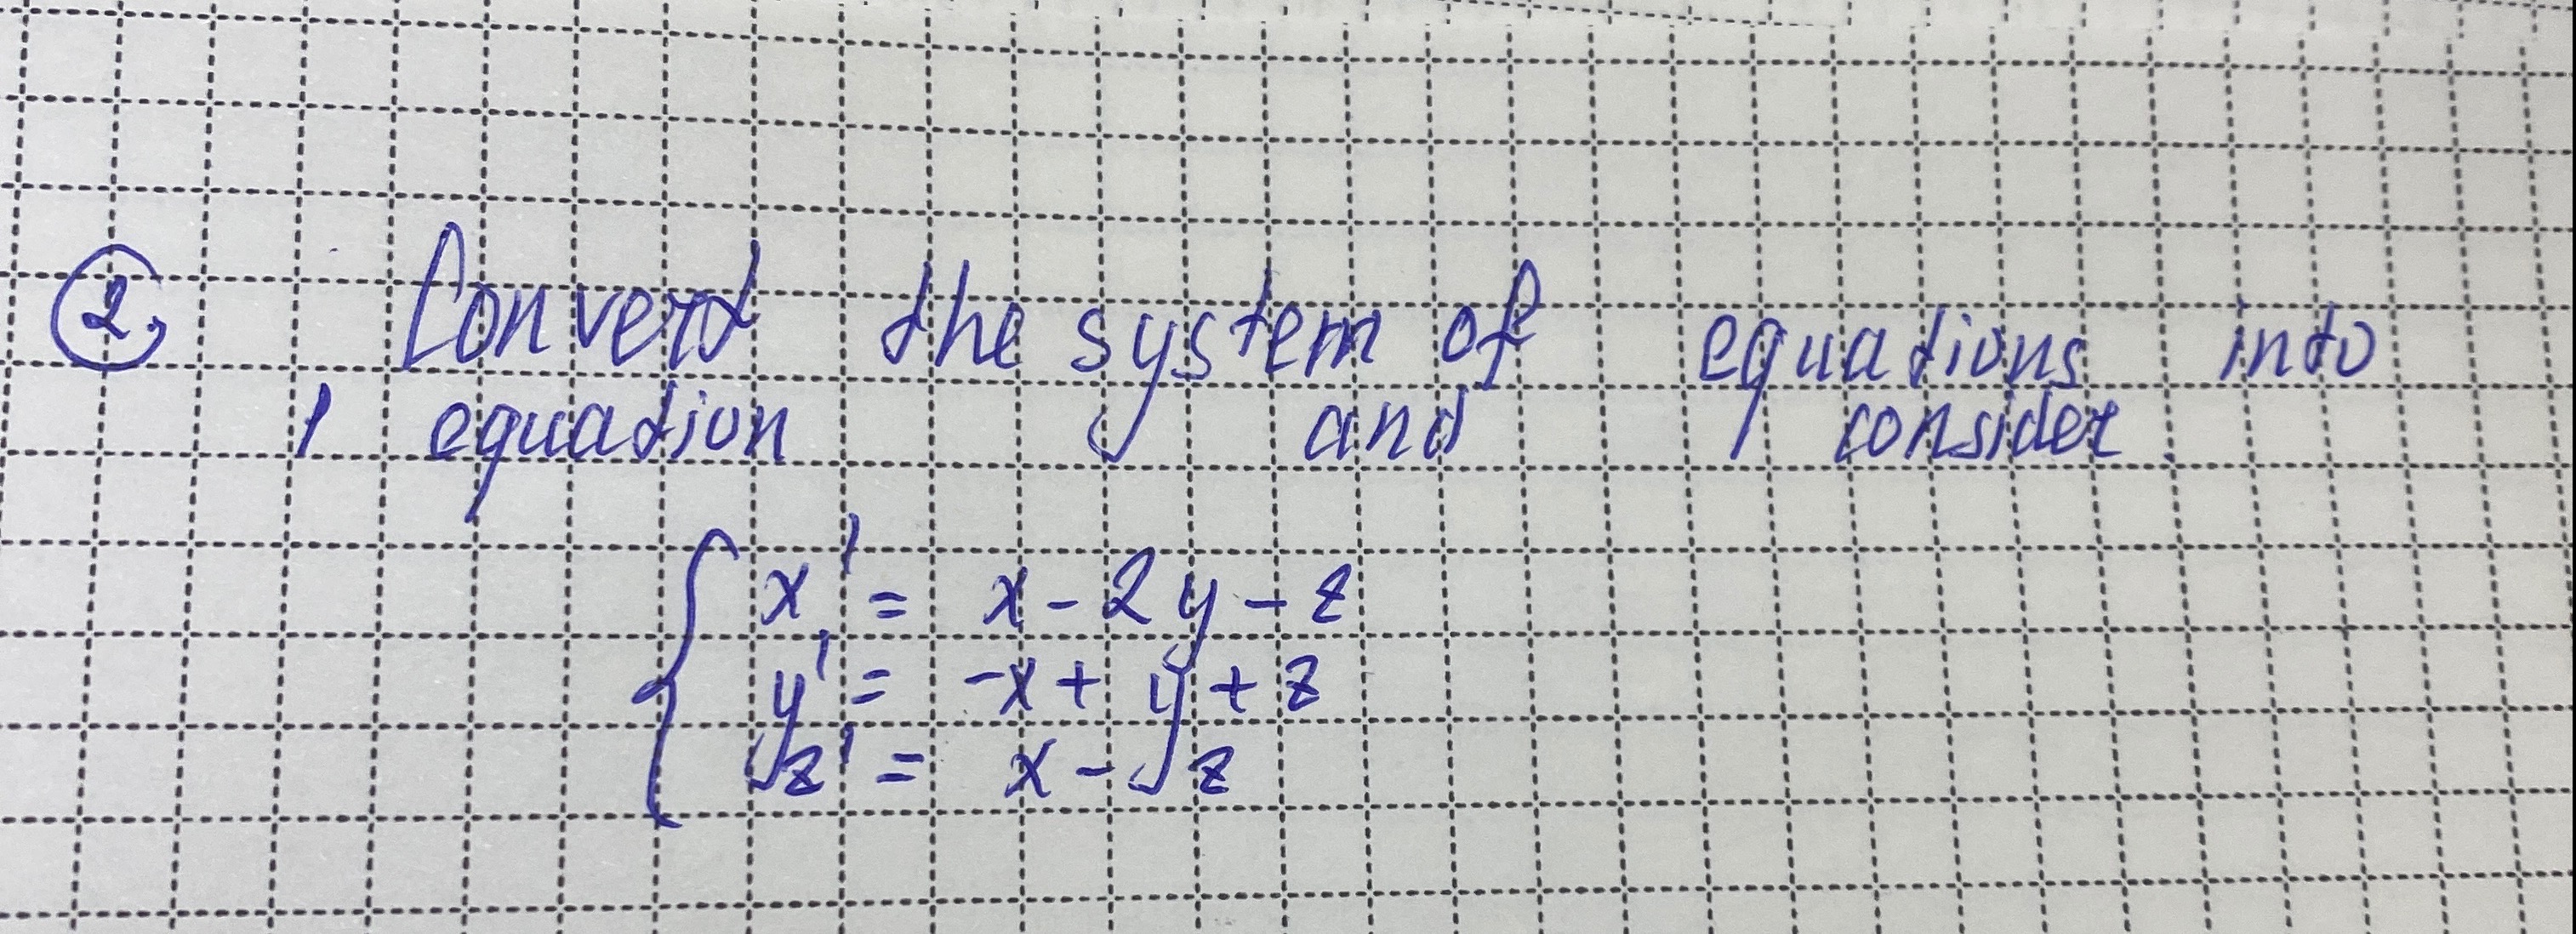 2. Convert the system of equations into
1 equation and consider.
x' = x - 2y - z
y' = -x + y + z
z' = x - z